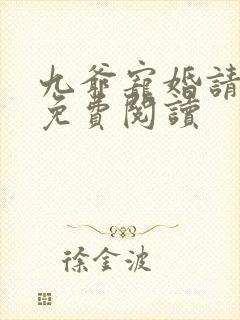 九爺寵婚請
免費閱讀
徐金波